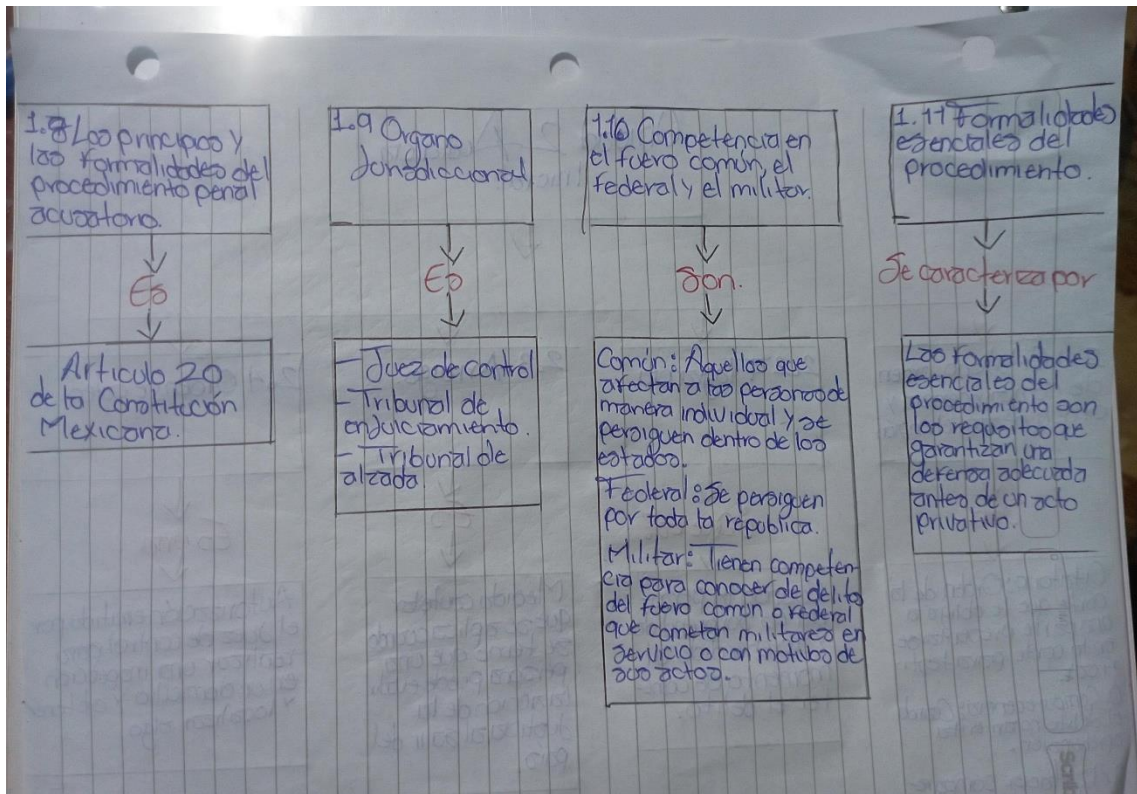 1.8 Los principios y
las formalidades del
procedimiento penal
acusatorio.
Es
Articulo 20
de la Constitución
Mexicana.
1.9 Organo
Jurisdiccional
Es
- Juez de control
- Tribunal de
enjuiciamiento.
- Tribunal de
alzada
1.10 Competencia en
el fuero común, el
federal y el militar.
Son.
Común: Aquellos que
afectan a las personas de
manera individual y se
persiguen dentro de los
estados.
Federal: Se persiguen
por toda la republica.
Militar: Tienen competen-
cia para conocer de delito
del fuero común o federal
que cometan militares en
servicio o con motivo de
sus actos.
1.11 Formalidades
esenciales del
procedimiento.
Se caracteriza por
Las formalidades
esenciales del
procedimiento son
los requisitos que
garantizan una
defensa adecuada
antes de un acto
privativo.